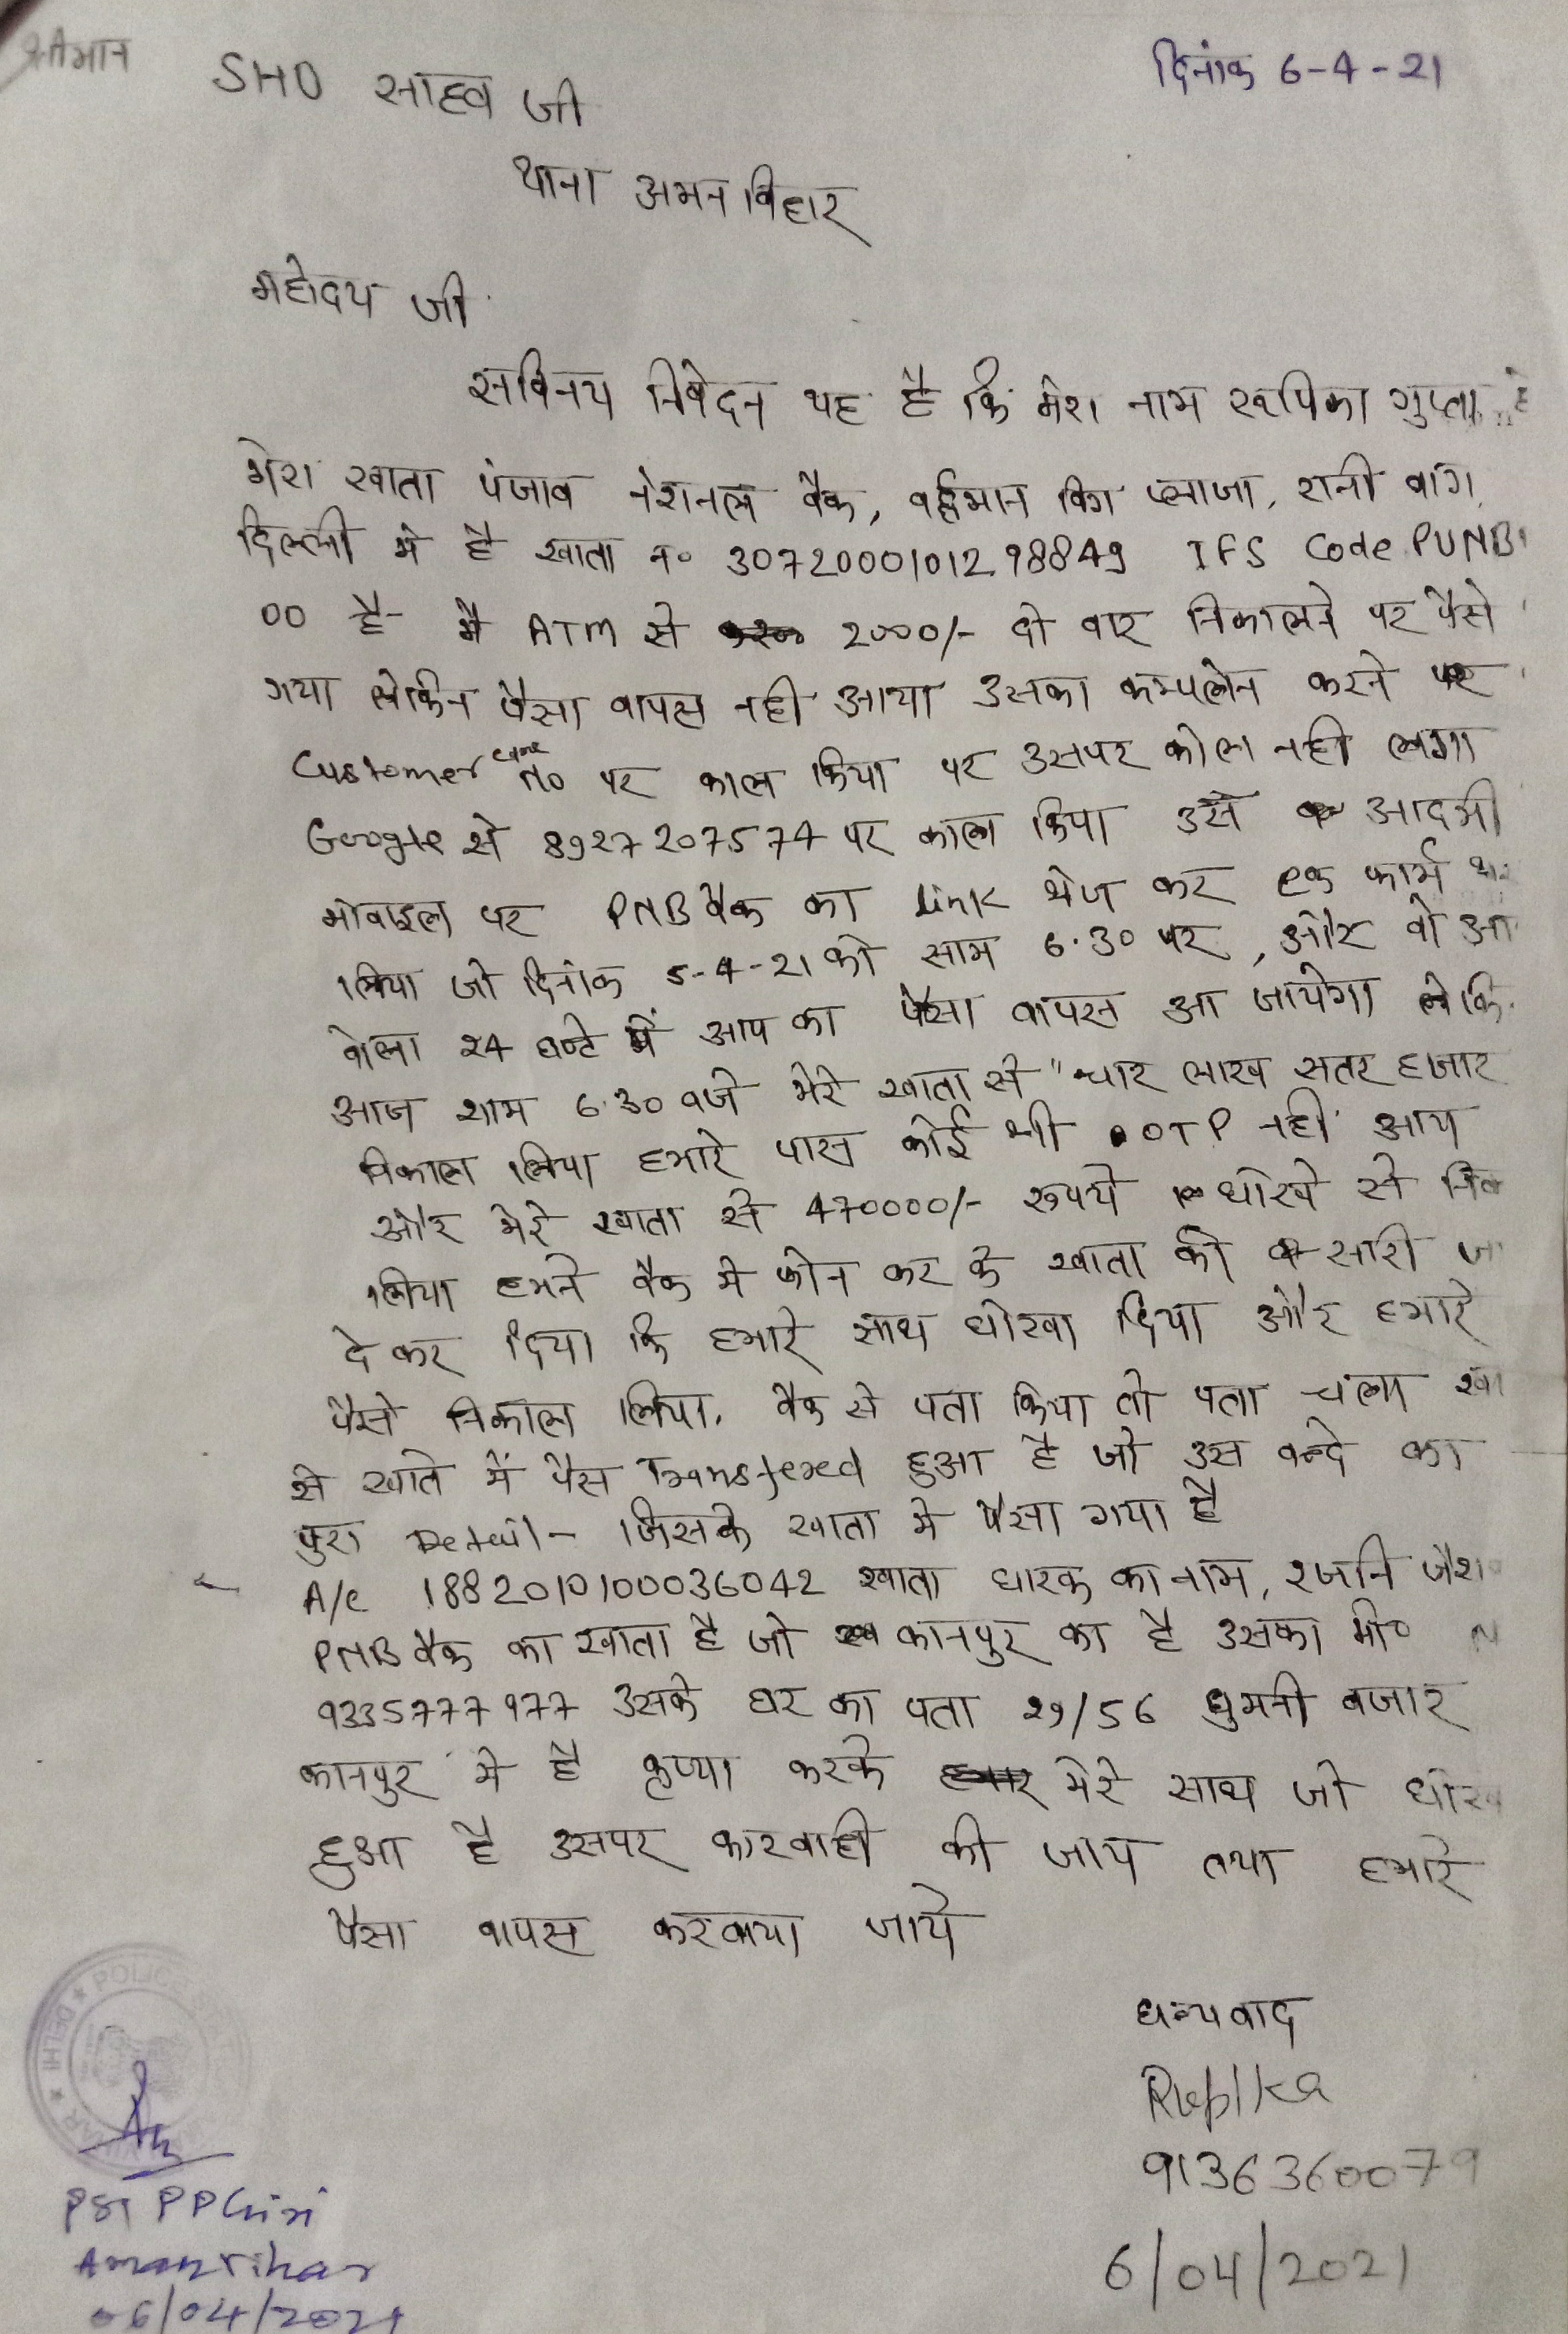 श्रीमान
SHO साहब जी
दिनांक 6-4-21
थाना अमन विहार
महोदय जी
सविनय निवेदन यह है कि मेरा नाम रूपिका गुप्ता है
मेरा खाता पंजाब नेशनल बैंक, वर्द्धमान किंग प्लाजा, रानी बाग
दिल्ली में है खाता न० 3072000101298849 IFS Code PUNB
00 है- मै ATM से 2000/- दो बार निकालने पर पैसे
गया लेकिन पैसा वापस नही आया उसका कम्पलेन करने पर
Customer care no पर काल किया पर उसपर कोल नही लगा
Google से 8927207574 पर काल किया उसे आदमी
मोबाइल पर PNB बैंक का link भेज कर एक फार्म
लिया जो दिनांक 5-4-21 को साम 6.30 पर, और वो
बोला 24 घण्टे में आप का पैसा वापस आ जायेगा लेकि
आज शाम 6.30 बजे मेरे खाता से "चार लाख सतर हजार
निकाल लिया हमारे पास कोई भी OTP नही आय
और मेरे खाता से 470000/- रूपये धोखे से
लिया हमने बैंक मे फोन कर के खाता की सारी
दे कर दिया कि हमारे साथ धोखा दिया और हमारे
पैसे निकाल लिया. बैंक से पता किया तो पता चला
से खाते में पैस Transfered हुआ है जो उस बन्दे का
पुरा Detail- जिसके खाता मे पैसा गया है
A/c 1882010100036042 खाता धारक का नाम, रजनि
PNB बैंक का खाता है जो कानपुर का है उसका मो०
9335777977 उसके घर का पता 29/56 धुमनी बजार
कानपुर मे है कृप्या करके मेरे साथ जो
हुआ है उसपर कारवाही की जाय तथा हमारे
पैसा वापस करवाया जाये
धन्यवाद
Rupika
9136360079
6/04/2021
POLICE
DELHI
PSI PP
Aman Vihar
06/04/2021